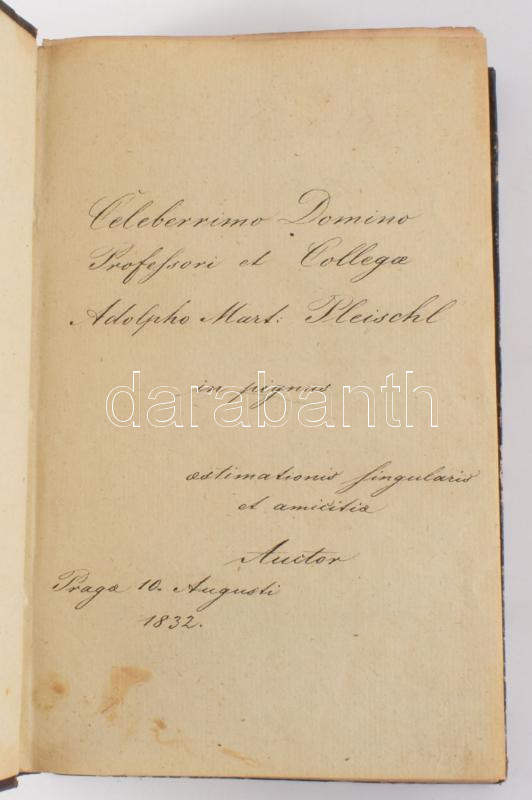 Celeberrimo Domino
Profeſsori et Collegæ
Adolpho Mart: Pleischl
in pignus
darabanth
æstimationis ſingularis
et amicitiæ
Auctor
Pragæ 10. Augusti
1832.